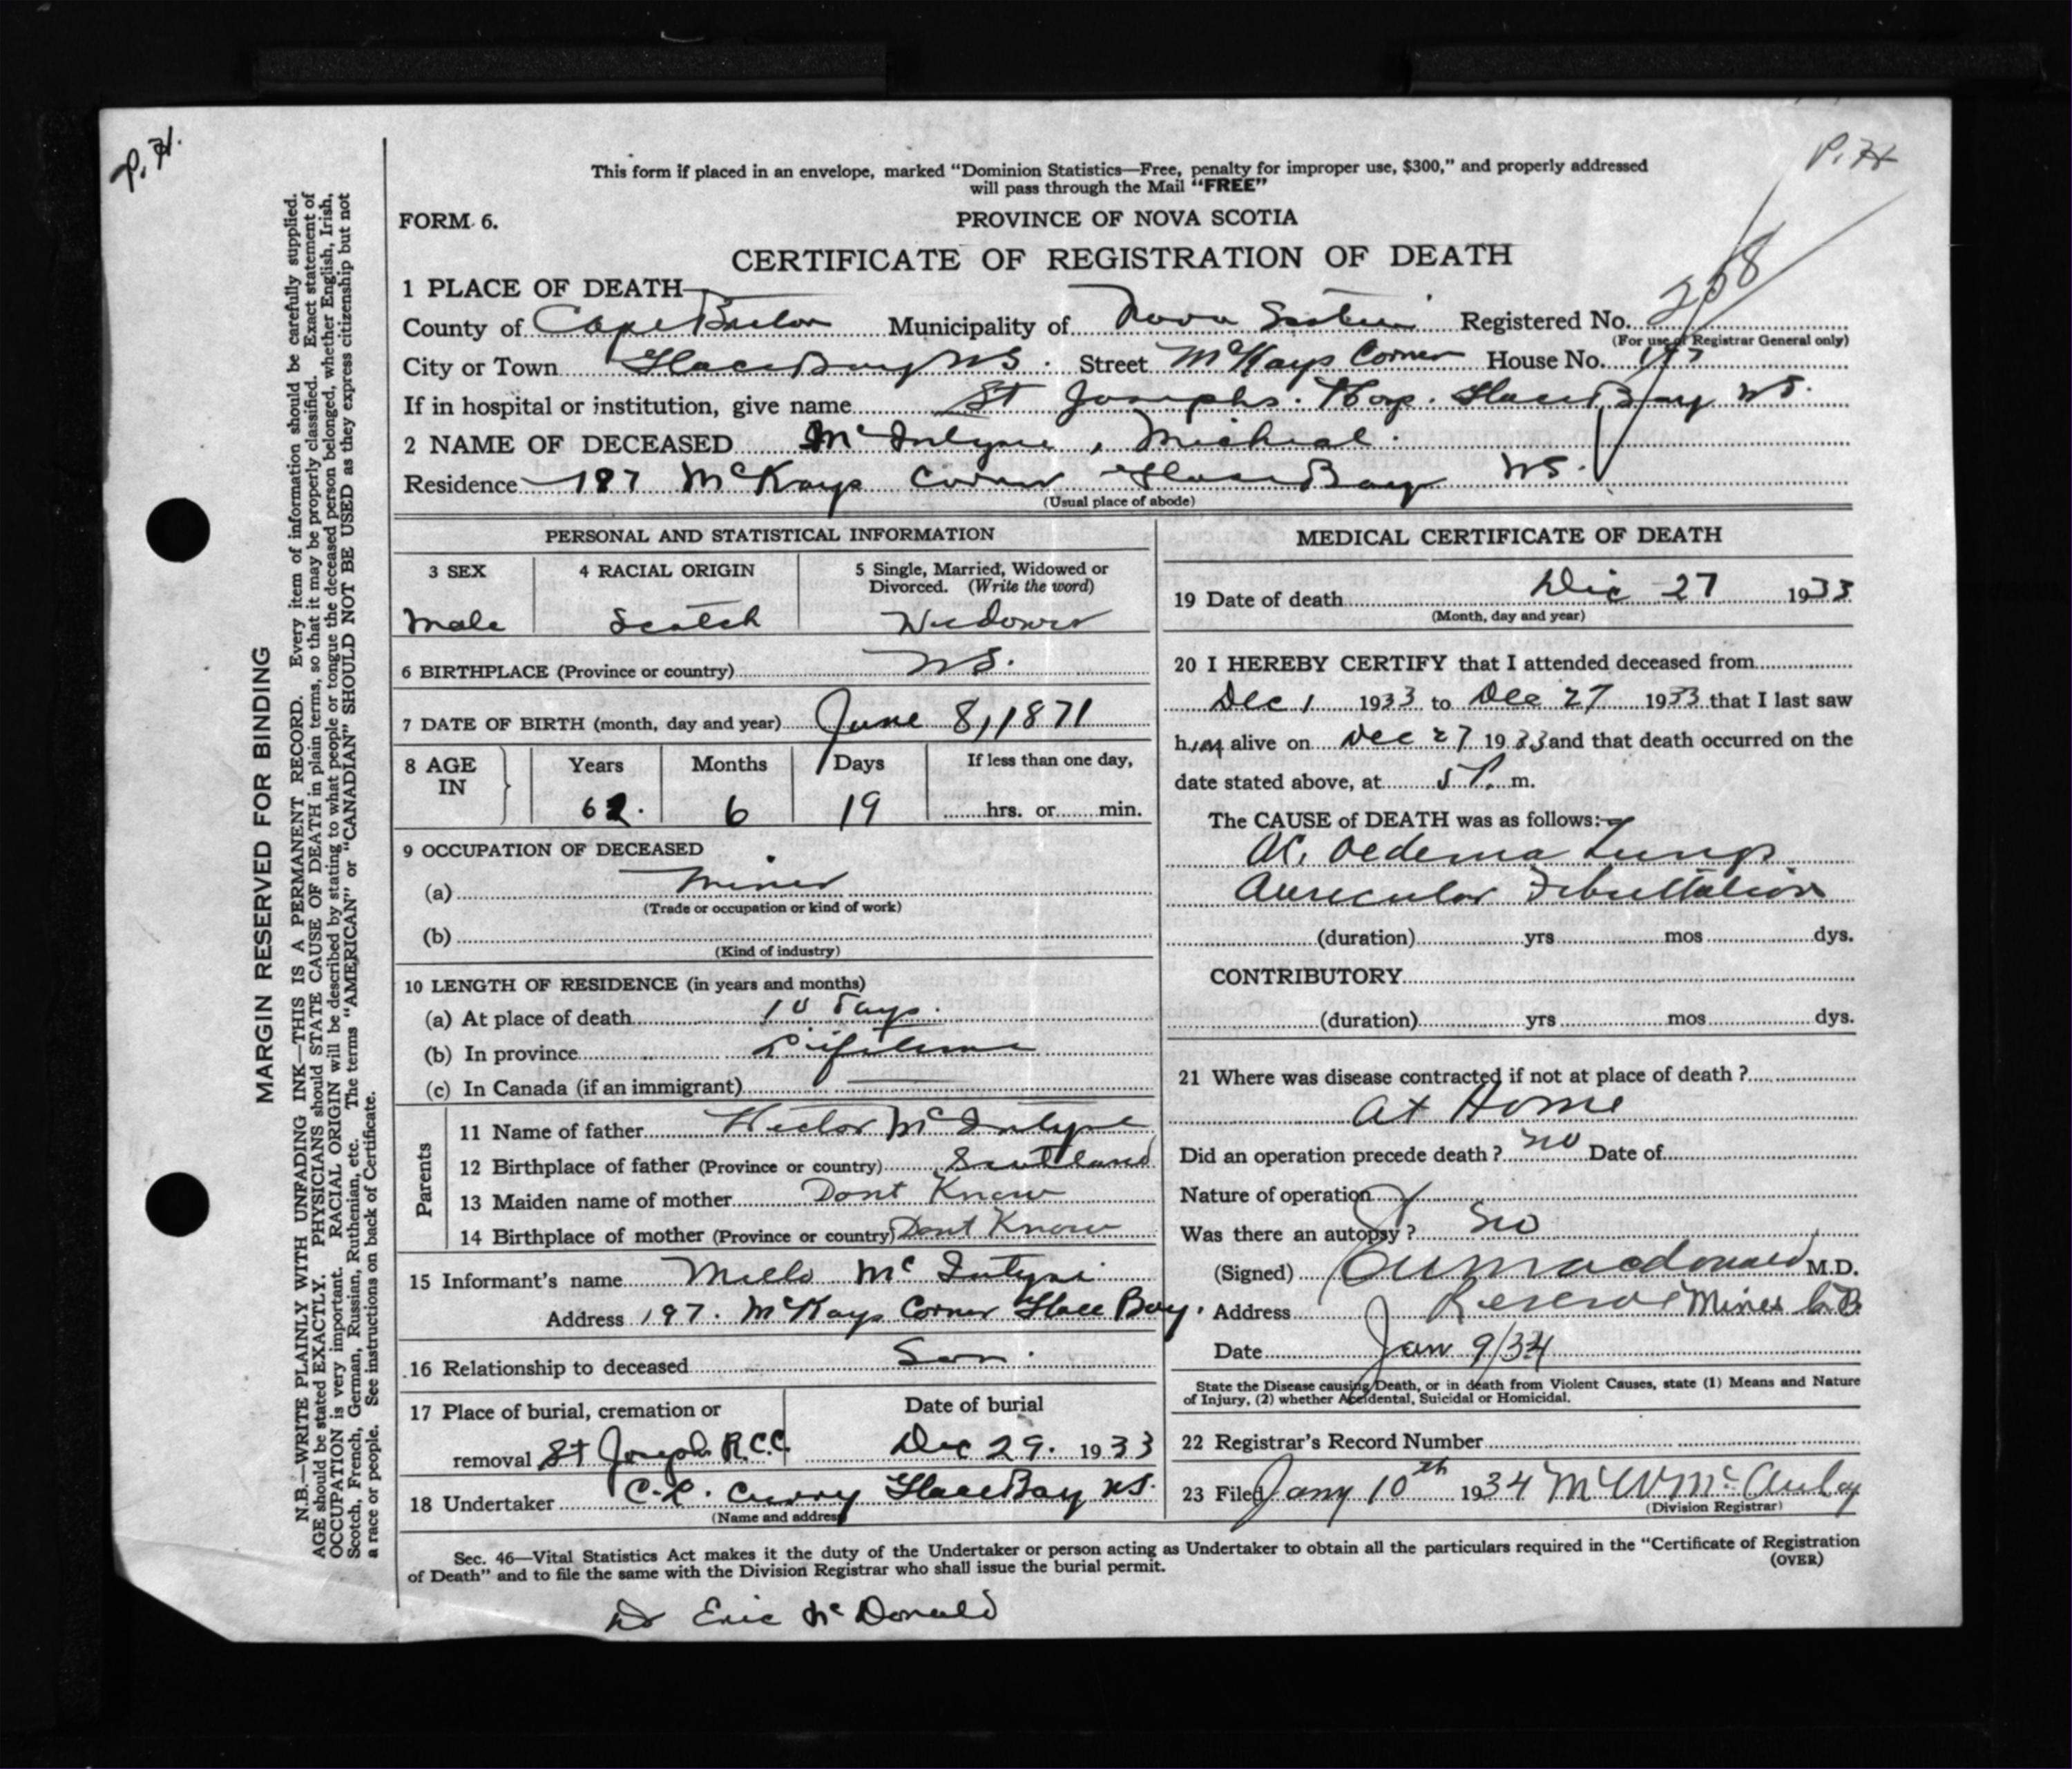 P.H.
P.H
This form if placed in an envelope, marked "Dominion Statistics—Free, penalty for improper use, $300," and properly addressed
will pass through the Mail "FREE"
FORM 6.
PROVINCE OF NOVA SCOTIA
CERTIFICATE OF REGISTRATION OF DEATH
1 PLACE OF DEATH
County of Cape Breton Municipality of Nova Scotia Registered No. 268
(For use of Registrar General only)
City or Town Glace Bay NS. Street McKays Corner House No. 197
If in hospital or institution, give name St Josephs. Hosp. Glace Bay NS.
2 NAME OF DECEASED McIntyre, Micheal.
Residence 187 McKays Corner Glace Bay NS.
(Usual place of abode)
PERSONAL AND STATISTICAL INFORMATION
3 SEX 4 RACIAL ORIGIN 5 Single, Married, Widowed or
Divorced. (Write the word)
Male Scotch Widower
6 BIRTHPLACE (Province or country) NS.
7 DATE OF BIRTH (month, day and year) June 8, 1871
8 AGE IN Years Months Days If less than one day,
62. 6 19 hrs. or min.
9 OCCUPATION OF DECEASED
(a) Miner
(Trade or occupation or kind of work)
(b)
(Kind of industry)
10 LENGTH OF RESIDENCE (in years and months)
(a) At place of death 10 Days.
(b) In province Lifetime
(c) In Canada (if an immigrant)
Parents
11 Name of father Hector McIntyre
12 Birthplace of father (Province or country) Scotland
13 Maiden name of mother Dont Know
14 Birthplace of mother (Province or country) Dont Know
15 Informant's name McIntyre
Address 197. McKays Corner Glace Bay.
16 Relationship to deceased Son.
17 Place of burial, cremation or Date of burial
removal St Joseph R.C.C. Dec 29. 1933
18 Undertaker C.L. Curry Glace Bay NS.
(Name and address)
MEDICAL CERTIFICATE OF DEATH
19 Date of death Dec 27 1933
(Month, day and year)
20 I HEREBY CERTIFY that I attended deceased from
Dec 1 1933 to Dec 27 1933 that I last saw
him alive on Dec 27 1933 and that death occurred on the
date stated above, at 5 P. m.
The CAUSE of DEATH was as follows:—
Ac. Oedema Lungs
Auricular Fibrillation
(duration) yrs mos dys.
CONTRIBUTORY
(duration) yrs mos dys.
21 Where was disease contracted if not at place of death?
At Home
Did an operation precede death? No Date of
Nature of operation
Was there an autopsy? No
(Signed) Macdonald M.D.
Address Reserve Mines C.B.
Date Jan 9/34
State the Disease causing Death, or in death from Violent Causes, state (1) Means and Nature
of Injury, (2) whether Accidental, Suicidal or Homicidal.
22 Registrar's Record Number
23 Filed Jany 10th 1934 McAulay
(Division Registrar)
Sec. 46—Vital Statistics Act makes it the duty of the Undertaker or person acting as Undertaker to obtain all the particulars required in the "Certificate of Registration
of Death" and to file the same with the Division Registrar who shall issue the burial permit.
(OVER)
Dr Eric McDonald
MARGIN RESERVED FOR BINDING
N.B.—WRITE PLAINLY WITH UNFADING INK—THIS IS A PERMANENT RECORD. Every item of information should be carefully supplied.
AGE should be stated EXACTLY. PHYSICIANS should STATE CAUSE OF DEATH in plain terms, so that it may be properly classified. Exact statement of
OCCUPATION is very important. RACIAL ORIGIN will be described by stating to what people or tongue the deceased person belonged, whether English, Irish,
Scotch, French, German, Russian, Ruthenian, etc. The terms "AMERICAN" or "CANADIAN" SHOULD NOT BE USED as they express citizenship but not
a race or people. See instructions on back of Certificate.